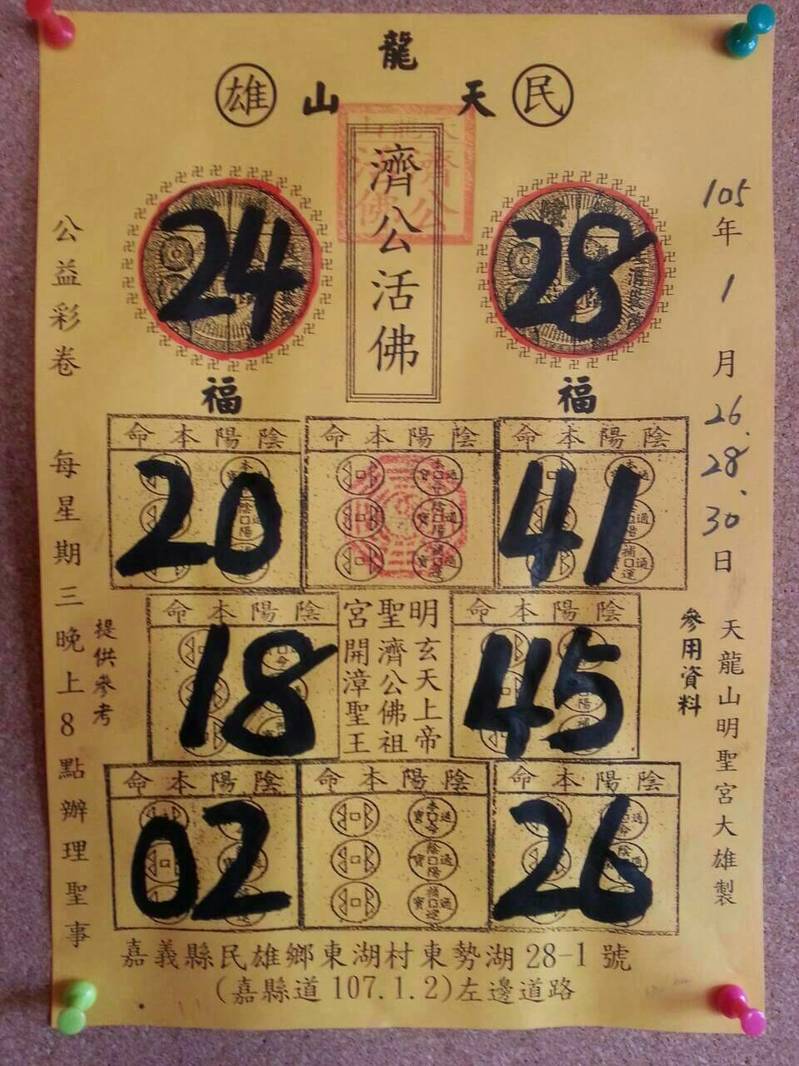 龍
雄 山 天 民
濟公活佛
24 28
福 福
105年1月26.28.30日
天龍山明聖宮大雄製
參用資料
公益彩卷 每星期三晚上8點辦理聖事
提供參考
命本陽陰 命本陽陰 命本陽陰
20 41
命本陽陰 宮聖明 命本陽陰
18 45
玄天上帝
濟公佛祖
開漳聖王
命本陽陰 命本陽陰 命本陽陰
02 26
嘉義縣民雄鄉東湖村東勢湖28-1號
(嘉縣道107.1.2)左邊道路